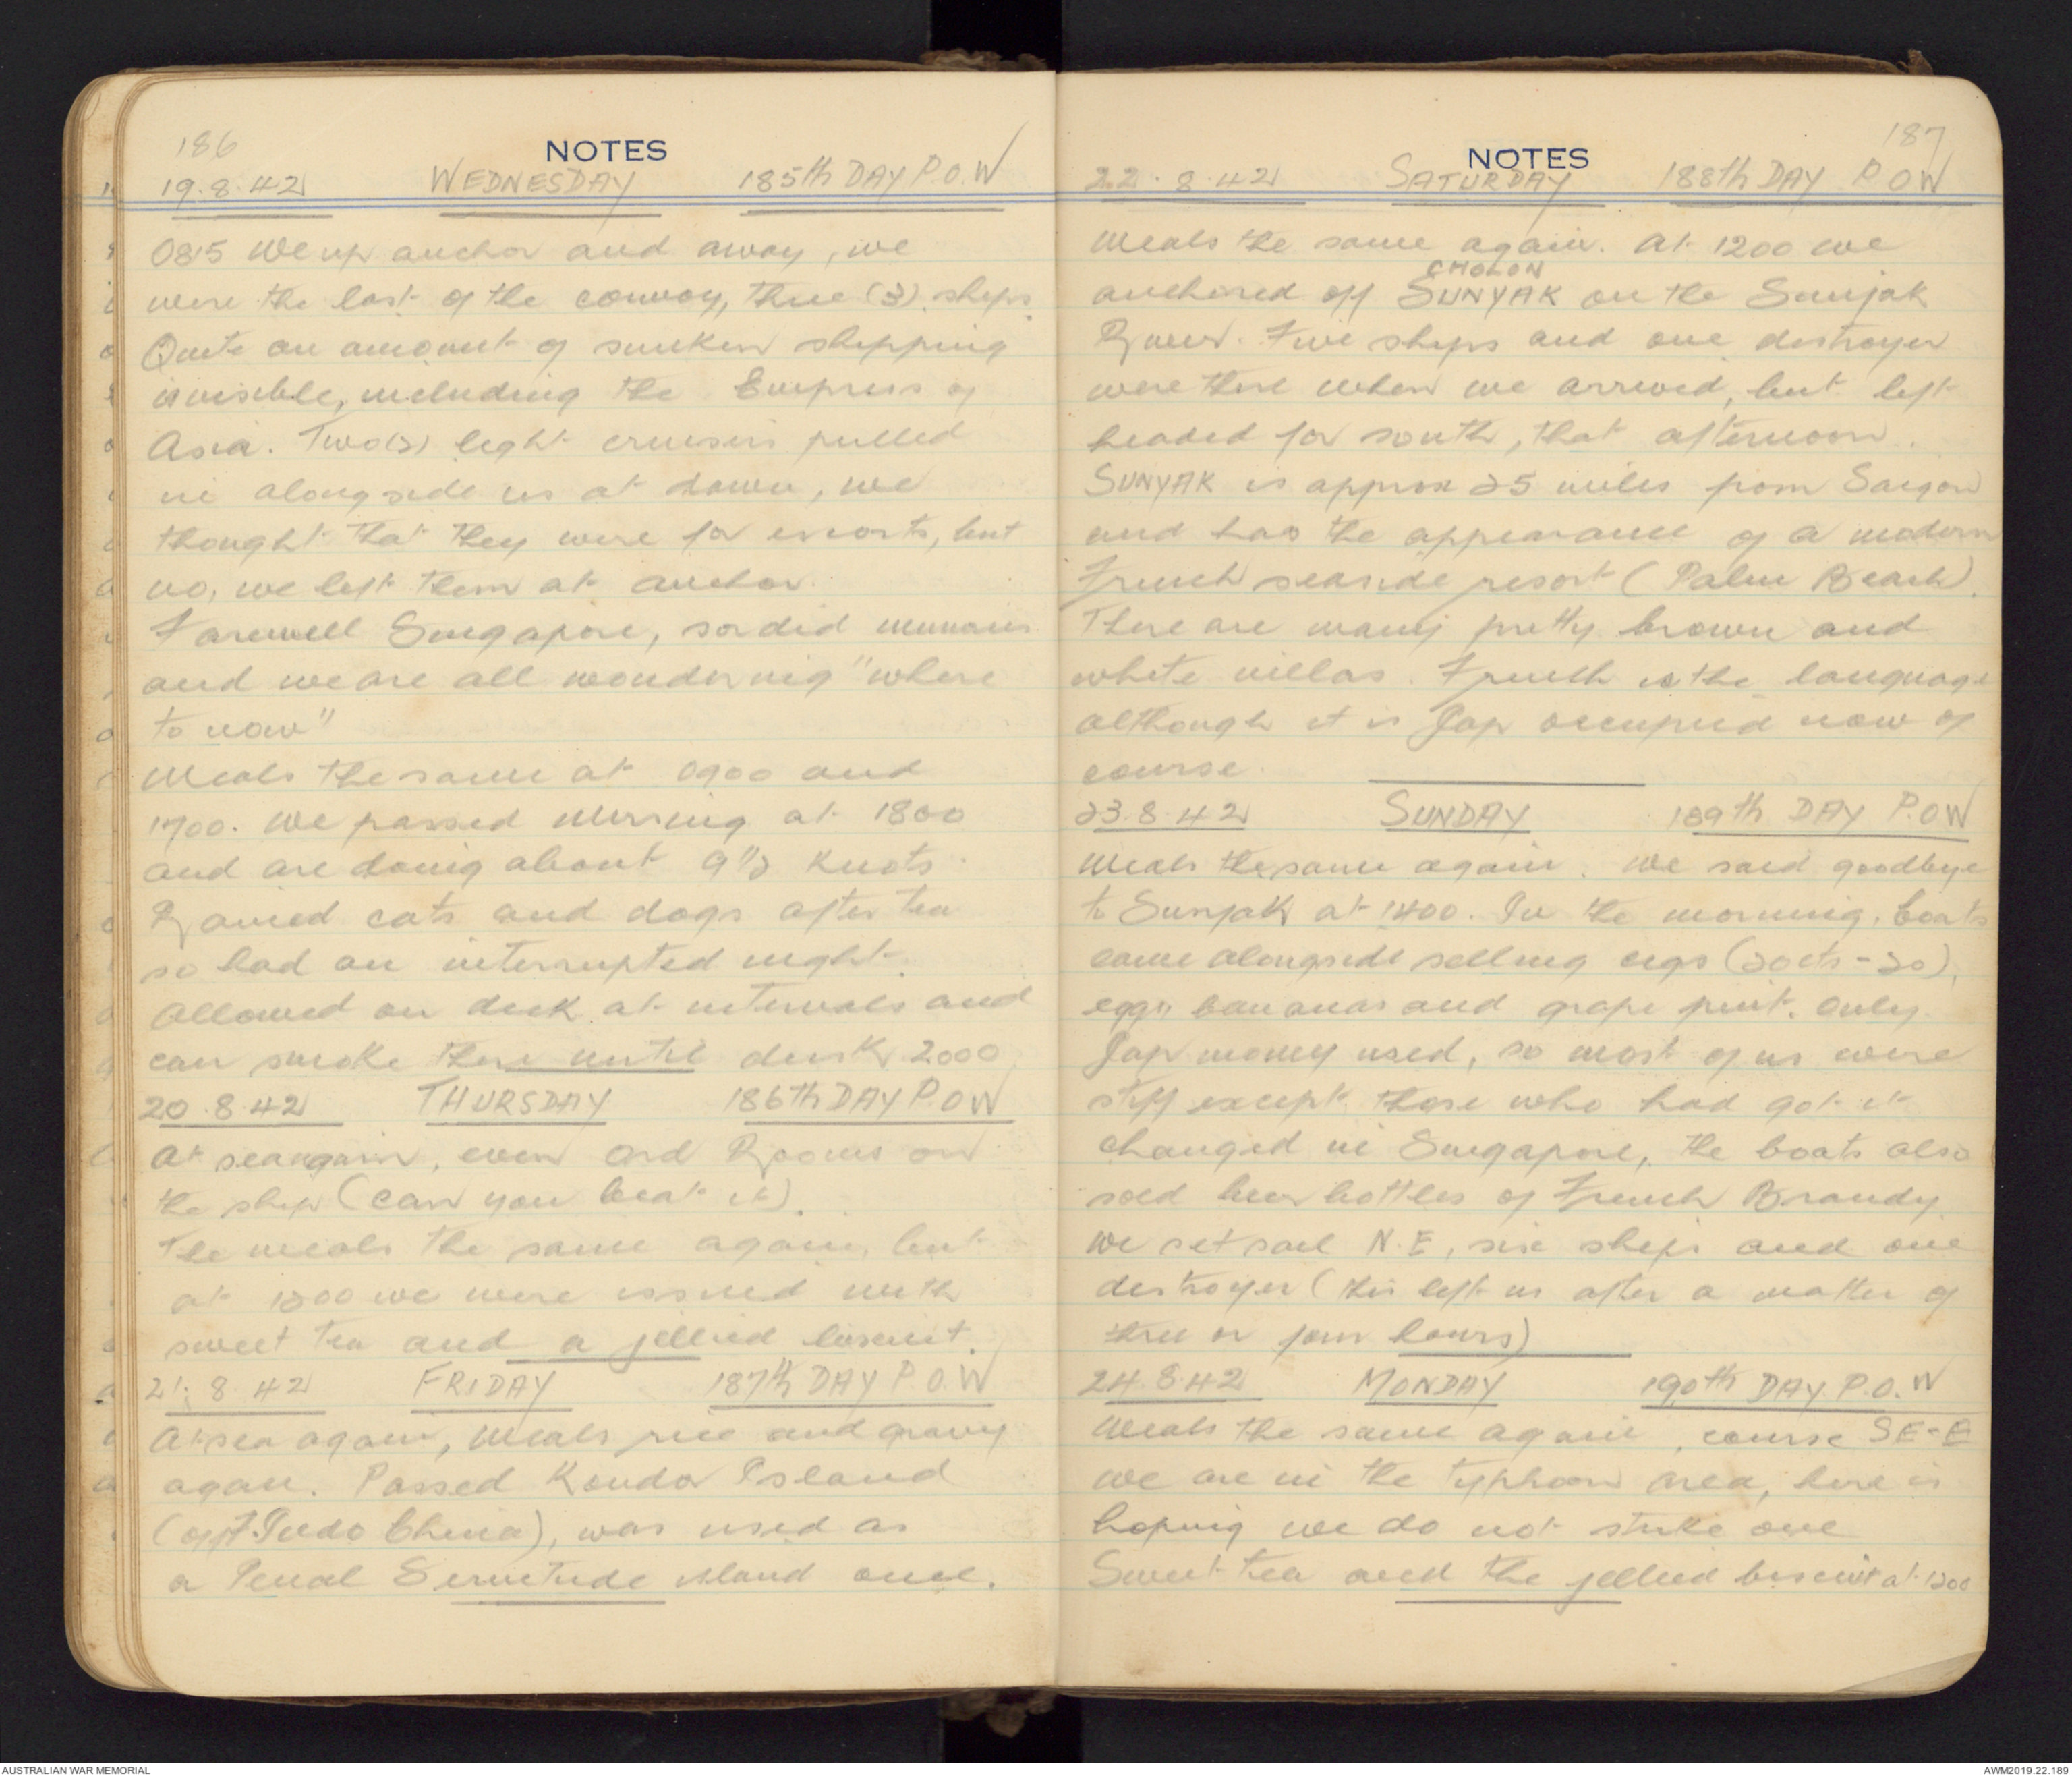 186
NOTES
19.8.42 WEDNESDAY 185th DAY P.O.W
0815 We up anchor and away, we
were the last of the convoy, three (3) ships.
Quite an amount of sunken shipping
is visible, including the Empress of
Asia. Two (2) light cruisers pulled
in alongside us at dawn, we
thought that they were for escorts, but
no, we left them at anchor.
Farewell Singapore, sordid memories
and we are all wondering "where
to now"
Meals the same at 0900 and
1700. We passed Mersing at 1800
and are doing about 9½ knots.
Rained cats and dogs after tea
so had an interrupted night.
Allowed on deck at intervals and
can smoke there until dusk 2000
20.8.42 THURSDAY 186th DAY P.O.W
At sea again, even Ord Rooms on
the ship (can you beat it).
The meals the same again, but
at 1200 we were issued with
sweet tea and a jellied biscuit.
21.8.42 FRIDAY 187th DAY P.O.W
At sea again, meals rice and gravy
again. Passed Kondor Island
(off Indo China), was used as
a Penal Servitude island once.
187
NOTES
22.8.42 SATURDAY 188th DAY P O W
Meals the same again. At 1200 we
CHOLON
anchored off SUNYAK on the Sunjak
River. Five ships and one destroyer
were there when we arrived, but left
headed for south, that afternoon.
SUNYAK is approx 25 miles from Saigon
and has the appearance of a modern
French seaside resort (Palm Beach).
There are many pretty brown and
white villas. French is the language
although it is Jap occupied now of
course.
23.8.42 SUNDAY 189th DAY P.O.W
Meals the same again. We said goodbye
to Sunjak at 1400. In the morning, boats
came alongside selling cigs (20cts - 20),
eggs bananas and grape fruit. Only
Jap money used, so most of us were
stiff except those who had got it
changed in Singapore, the boats also
sold beer bottles of French Brandy.
We set sail N.E, six ships and one
destroyer (this left us after a matter of
three or four hours)
24.8.42 MONDAY 190th DAY P.O.W
Meals the same again, course SE-E
we are in the typhoon area, here is
hoping we do not strike one
Sweet tea and the jellied biscuit at 1200
AUSTRALIAN WAR MEMORIAL
AWM2019.22.189